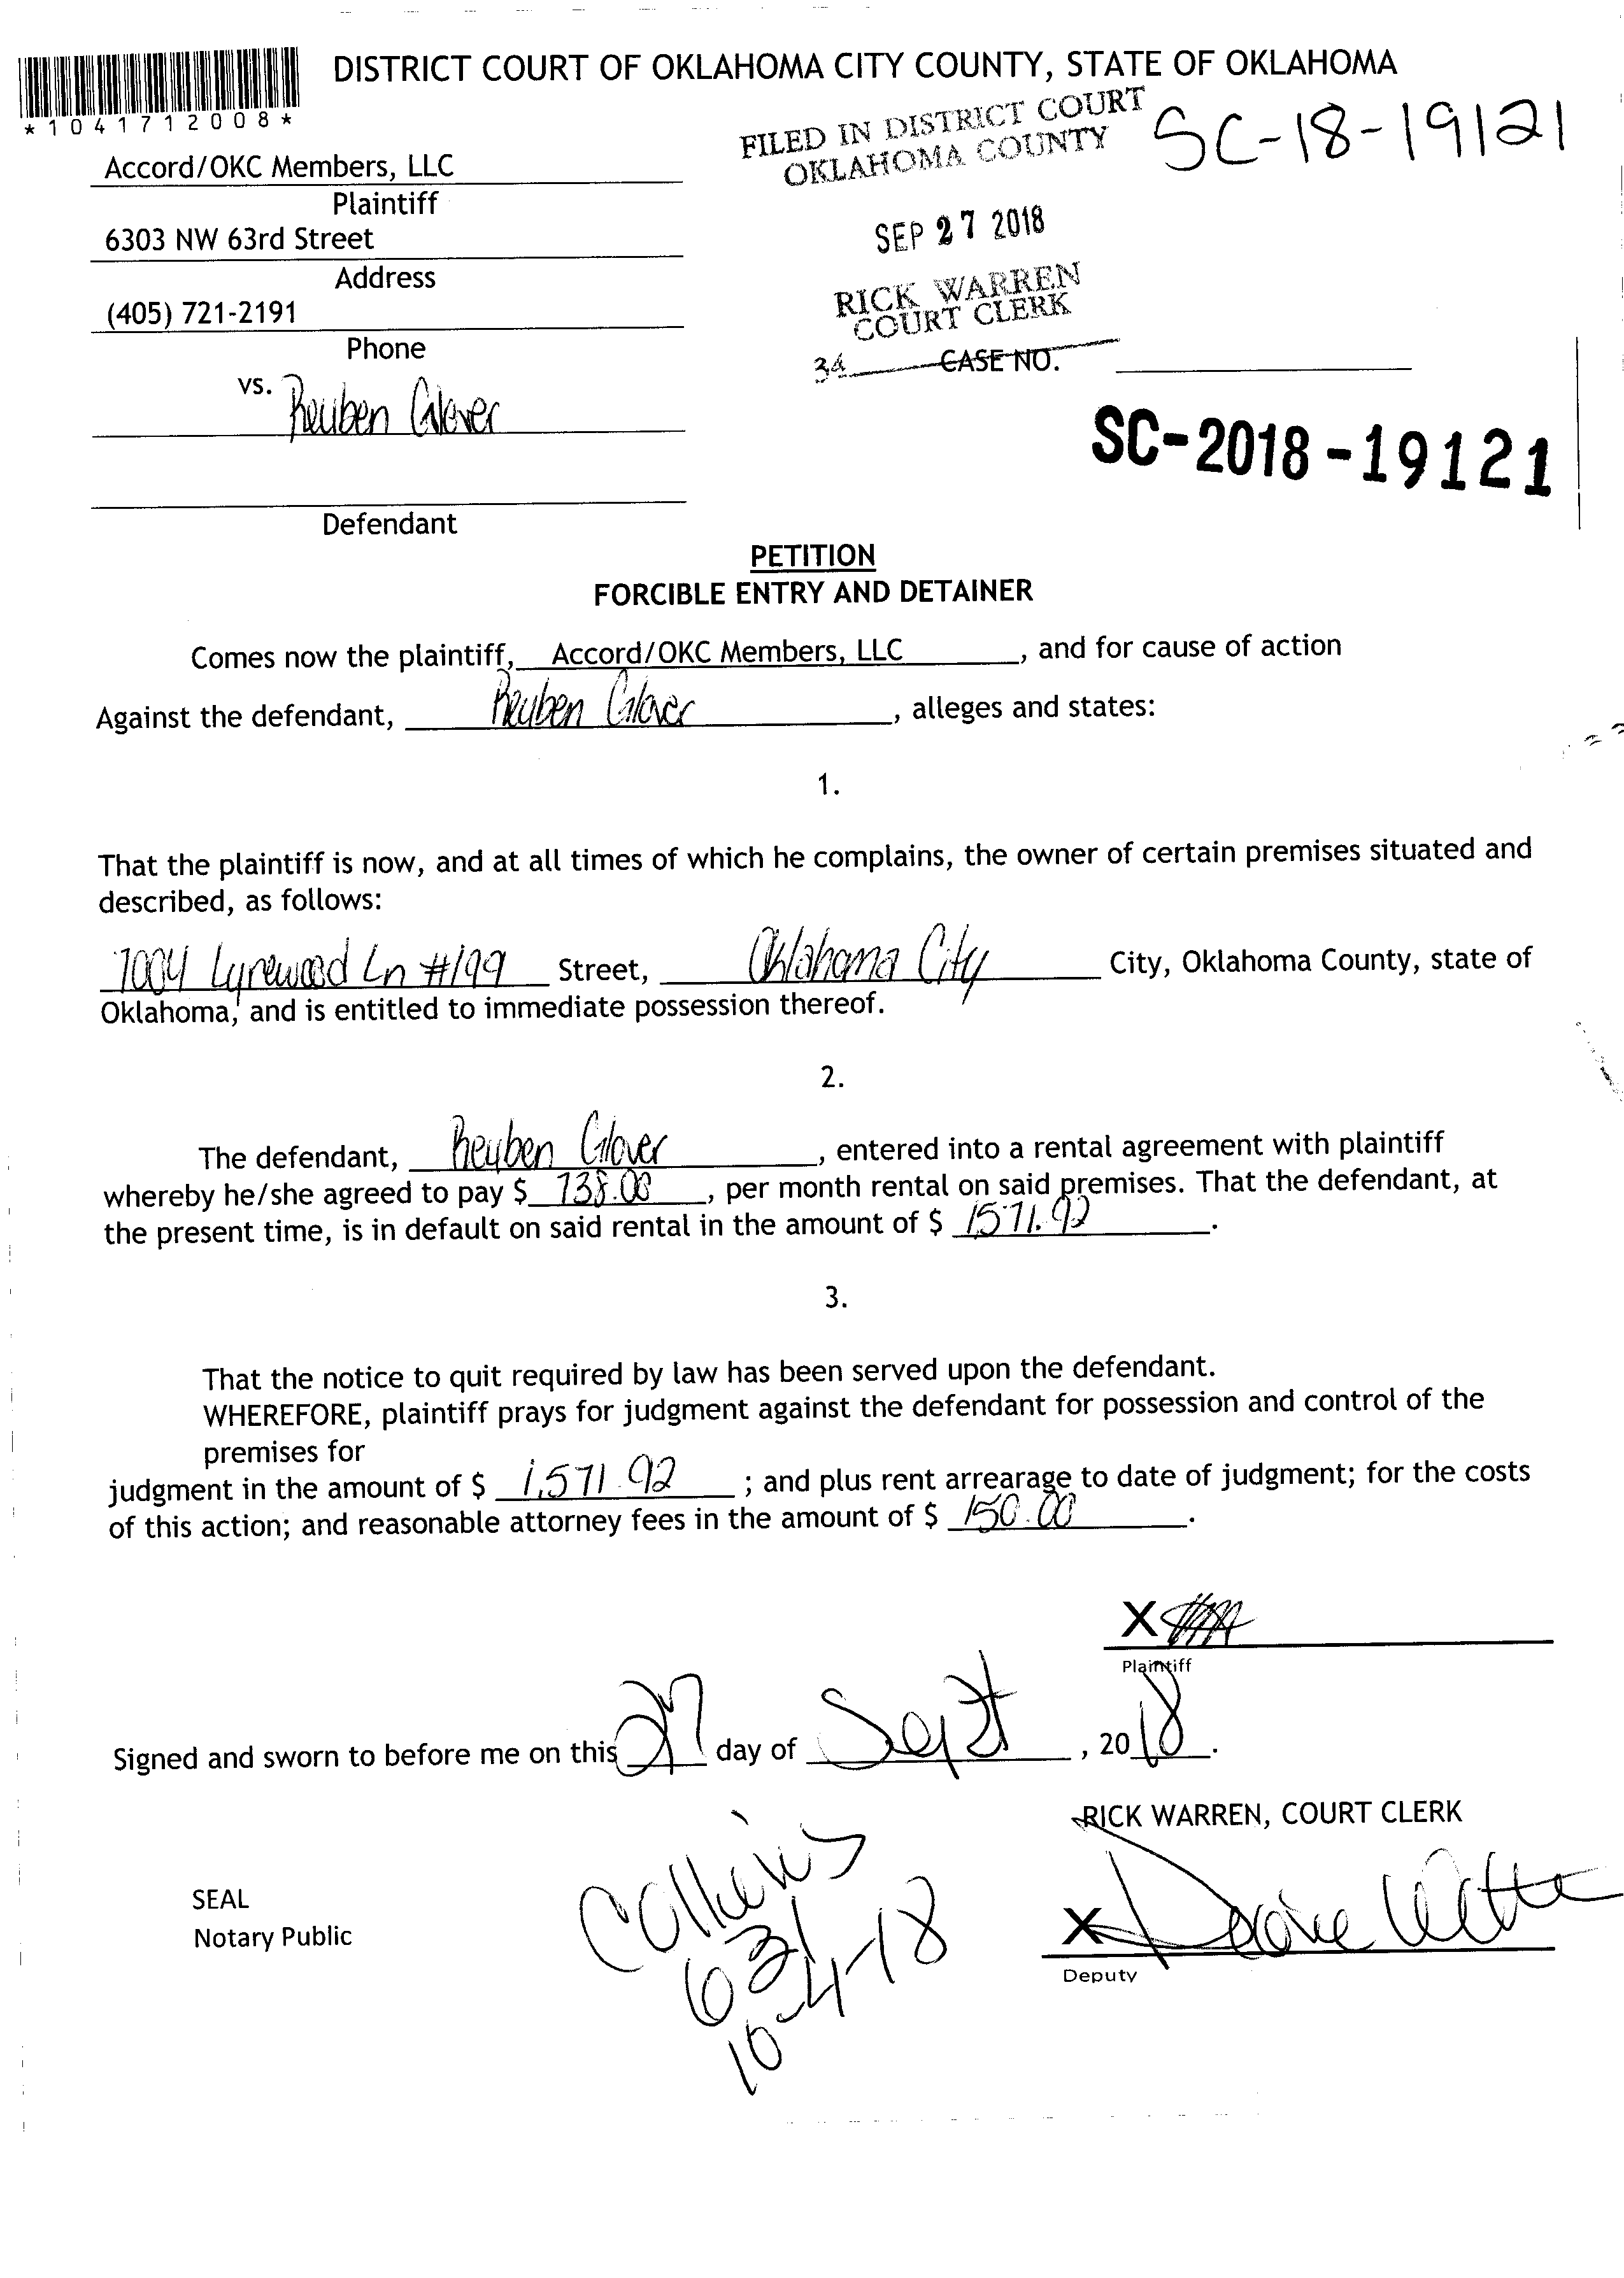 DISTRICT COURT OF OKLAHOMA CITY COUNTY, STATE OF OKLAHOMA
*1041712008*
FILED IN DISTRICT COURT
OKLAHOMA COUNTY
SC-18-19121
Accord/OKC Members, LLC
Plaintiff
6303 NW 63rd Street
SEP 27 2018
Address
(405) 721-2191
RICK WARREN
COURT CLERK
Phone
34 CASE NO.
vs. Reuben Glover
SC-2018-19121
Defendant
PETITION
FORCIBLE ENTRY AND DETAINER
Comes now the plaintiff, Accord/OKC Members, LLC, and for cause of action
Against the defendant, Reuben Glover, alleges and states:
1.
That the plaintiff is now, and at all times of which he complains, the owner of certain premises situated and
described, as follows:
7004 Lyrewood Ln #199 Street, Oklahoma City City, Oklahoma County, state of
Oklahoma, and is entitled to immediate possession thereof.
2.
The defendant, Reuben Glover, entered into a rental agreement with plaintiff
whereby he/she agreed to pay $ 738.00, per month rental on said premises. That the defendant, at
the present time, is in default on said rental in the amount of $ 1571.92.
3.
That the notice to quit required by law has been served upon the defendant.
WHEREFORE, plaintiff prays for judgment against the defendant for possession and control of the
premises for
judgment in the amount of $ 1,571.92; and plus rent arrearage to date of judgment; for the costs
of this action; and reasonable attorney fees in the amount of $ 150.00.
X
Plaintiff
Signed and sworn to before me on this 27 day of Sept, 2018.
RICK WARREN, COURT CLERK
Collins
631
10-4-18
SEAL
Notary Public
X
Deputy